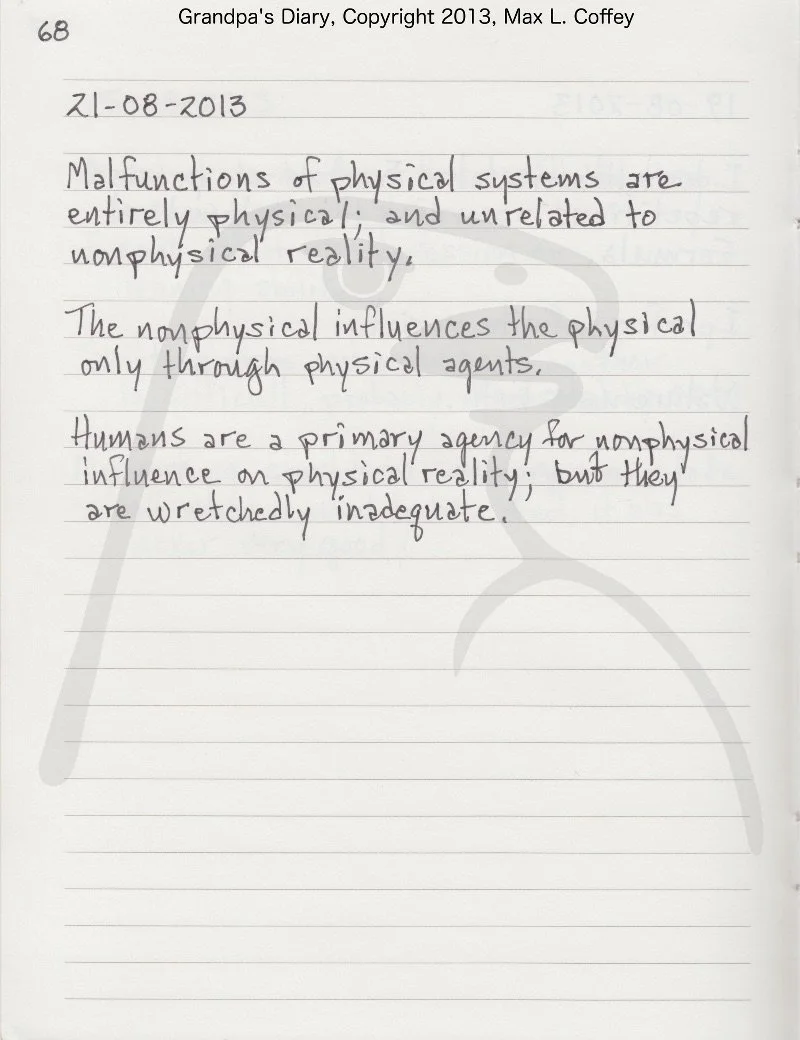 Grandpa's Diary, Copyright 2013, Max L. Coffey
68
21-08-2013
Malfunctions of physical systems are
entirely physical; and unrelated to
nonphysical reality.
The nonphysical influences the physical
only through physical agents.
Humans are a primary agency for nonphysical
influence on physical reality; but they
are wretchedly inadequate.